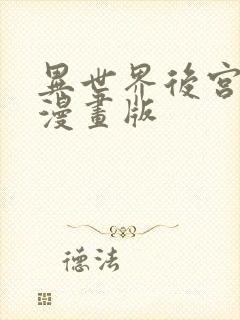 異世界後宮
漫畫版
德法